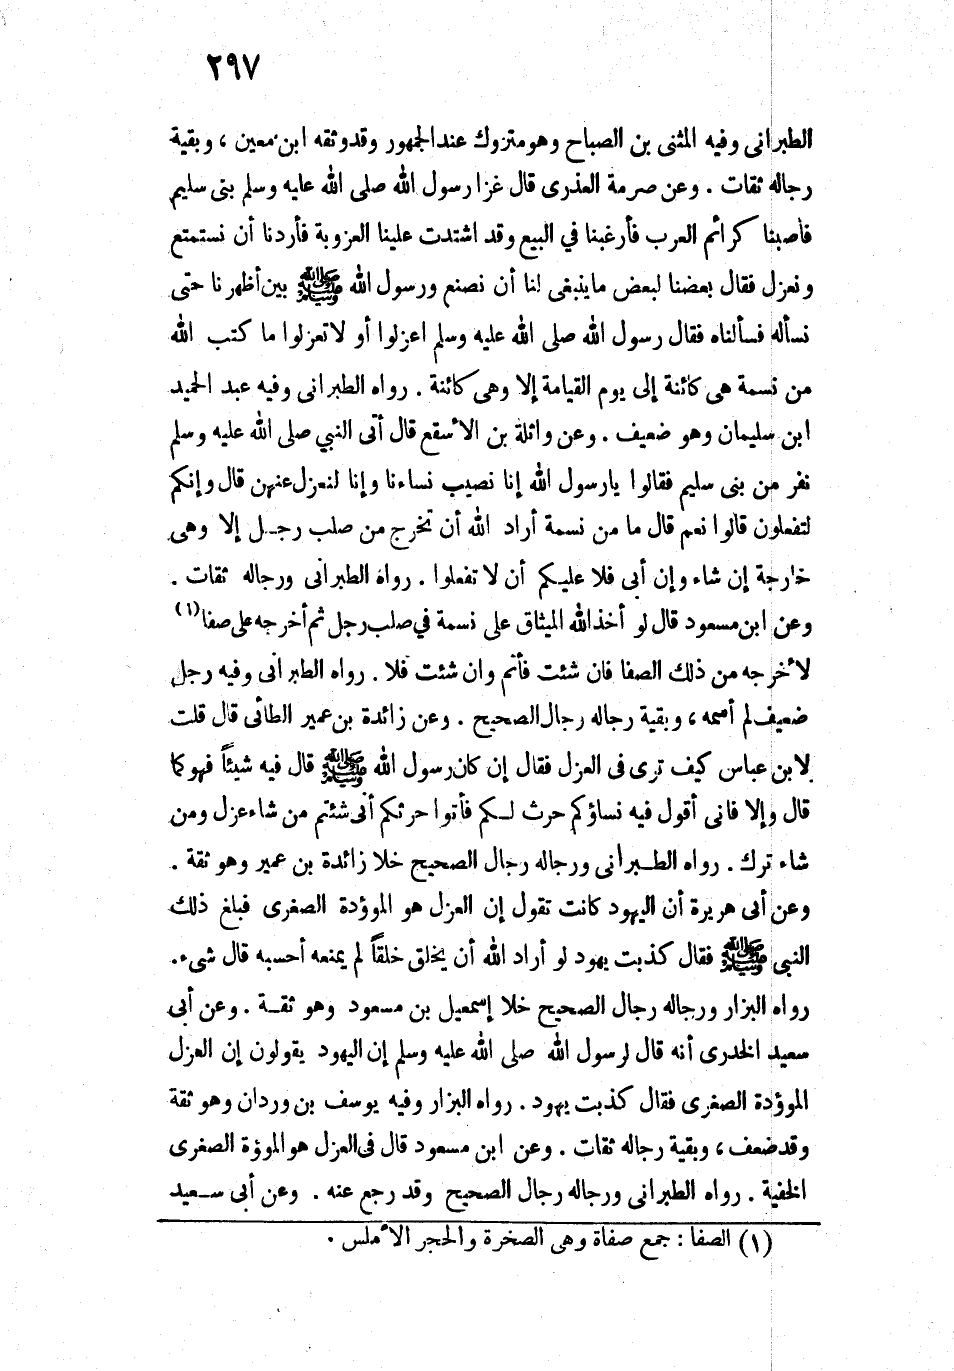 ٢٩٧
الطبرانى وفيه المثنى بن الصباح وهو متروك عند الجمهور وقد وثقه ابن معين ، وبقية
رجاله ثقات . وعن صرمة العذرى قال غزا رسول الله صلى الله عليه وسلم بنى سليم
فأصبنا كرائم العرب فأرغبنا في البيع وقد اشتدت علينا العزوبة فأردنا أن نستمتع
ونعزل فقال بعضنا لبعض ما ينبغى لنا أن نصنع ورسول الله ﷺ بين أظهرنا حتى
نسأله فسألناه فقال رسول الله صلى الله عليه وسلم اعزلوا أو لا تعزلوا ما كتب الله
من نسمة هى كائنة إلى يوم القيامة إلا وهى كائنة . رواه الطبرانى وفيه عبد الحميد
ابن سليمان وهو ضعيف . وعن واثلة بن الأسقع قال أتى النبي صلى الله عليه وسلم
نفر من بنى سليم فقالوا يارسول الله إنا نصيب نساءنا وإنا لنعزل عنهن قال وإنكم
لتفعلون قالوا نعم قال ما من نسمة أراد الله أن تخرج من صلب رجل إلا وهى
خارجة إن شاء وإن أبى فلا عليكم أن لا تفعلوا . رواه الطبرانى ورجاله ثقات .
وعن ابن مسعود قال لو أخذ الله الميثاق على نسمة في صلب رجل ثم أخرجه على صفا(١)
لأخرجه من ذلك الصفا فان شئت فأتم وان شئت فلا . رواه الطبرانى وفيه رجل
ضعيف لم أسمه ، وبقية رجاله رجال الصحيح . وعن زائدة بن عمير الطائى قال قلت
لابن عباس كيف ترى فى العزل فقال إن كان رسول الله ﷺ قال فيه شيئاً فهو كما
قال وإلا فانى أقول فيه نساؤكم حرث لكم فأتوا حرثكم أنى شئتم من شاء عزل ومن
شاء ترك . رواه الطبرانى ورجاله رجال الصحيح خلا زائدة بن عمير وهو ثقة .
وعن أبى هريرة أن اليهود كانت تقول إن العزل هو الموؤدة الصغرى فبلغ ذلك
النبى ﷺ فقال كذبت يهود لو أراد الله أن يخلق خلقاً لم يمنعه أحسبه قال شىء.
رواه البزار ورجاله رجال الصحيح خلا إسمعيل بن مسعود وهو ثقة . وعن أبى
سعيد الخدرى أنه قال لرسول الله صلى الله عليه وسلم إن اليهود يقولون إن العزل
الموؤدة الصغرى فقال كذبت يهود . رواه البزار وفيه يوسف بن وردان وهو ثقة
وقد ضعف ، وبقية رجاله ثقات . وعن ابن مسعود قال فى العزل هو الموؤة الصغرى
الخفية . رواه الطبرانى ورجاله رجال الصحيح وقد رجع عنه . وعن أبى سعيد
(١) الصفا : جمع صفاة وهى الصخرة والحجر الأملس .